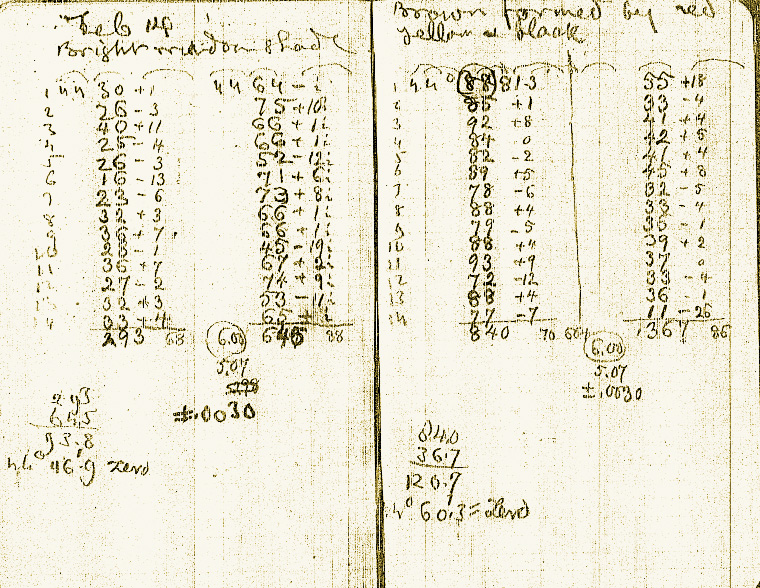 Feb 14
Bright
1 44 30 +1 44 64 -
2 26 -3 75 +10
3 40 +11 66 + 1
4 25 - 4 66 + 1
5 26 - 3 52 - 12
6 16 - 13 71 + 6
7 23 - 6 73 + 8
32 + 3 66 + 1
36 + 7 66 + 1
26 - 1 45 - 19
36 +7 67 + 2
27 - 2 74 + 9
32 +3 53 - 1
33 +4 65 +
293 68 6.00 645 88
5.07
±.0030
293
64.5
93.8
44° 46.9 zero
Brown formed by red
yellow & black
1 44° 88 81 -3 55 +18
2 85 +1 33 - 4
3 92 +8 41 + 4
4 84 0 42 + 5
5 82 - 2 41 + 4
6 89 +5 45 + 8
7 78 -6 32 - 5
8 88 +4 33 - 4
9 79 - 5 36 - 1
10 88 +4 39 + 2
11 93 +9 37 0
12 72 -12 33 - 4
13 88 +4 36 1
14 77 -7 11 - 26
840 70 367 86
6.00
5.07
±.0030
84.0
36.7
120.7
44° 60.3 = zero